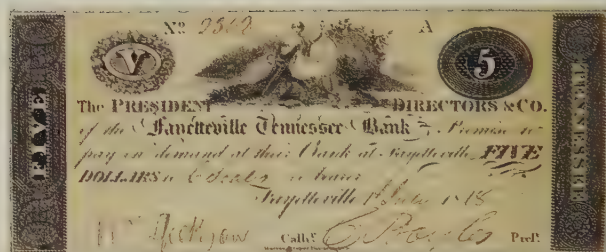 No 2362 A
V 5
The PRESIDENT DIRECTORS & CO.
of the Fayetteville Tennessee Bank Promise to
pay on demand at their Bank at Fayetteville FIVE
DOLLARS to or bearer
Fayetteville 1 July 1818
Cashr. Presdt.
FIVE
TENNESSEE